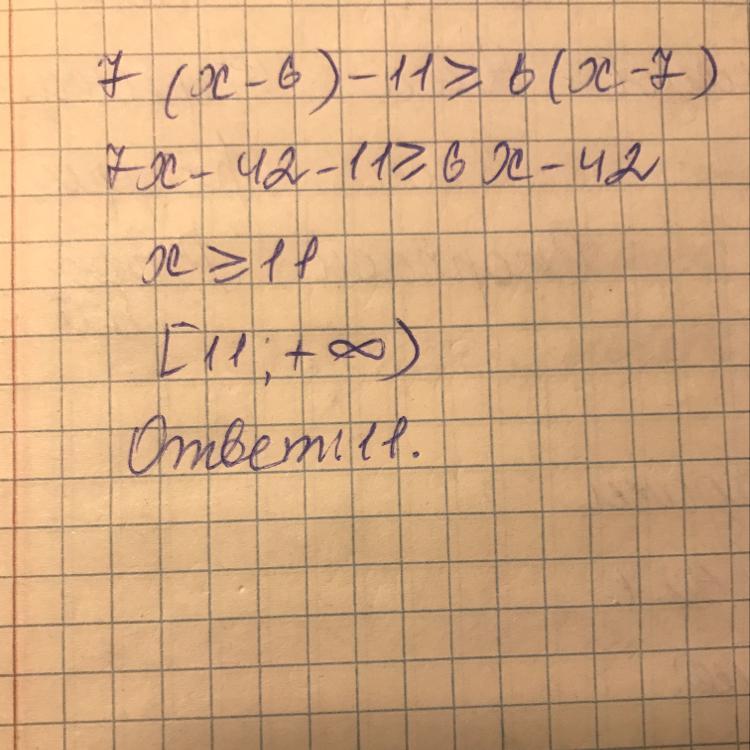 7 (x - 6) - 11 ≥ 6 (x - 7)
7x - 42 - 11 ≥ 6x - 42
x ≥ 11
[11; +∞)
Ответ: 11.